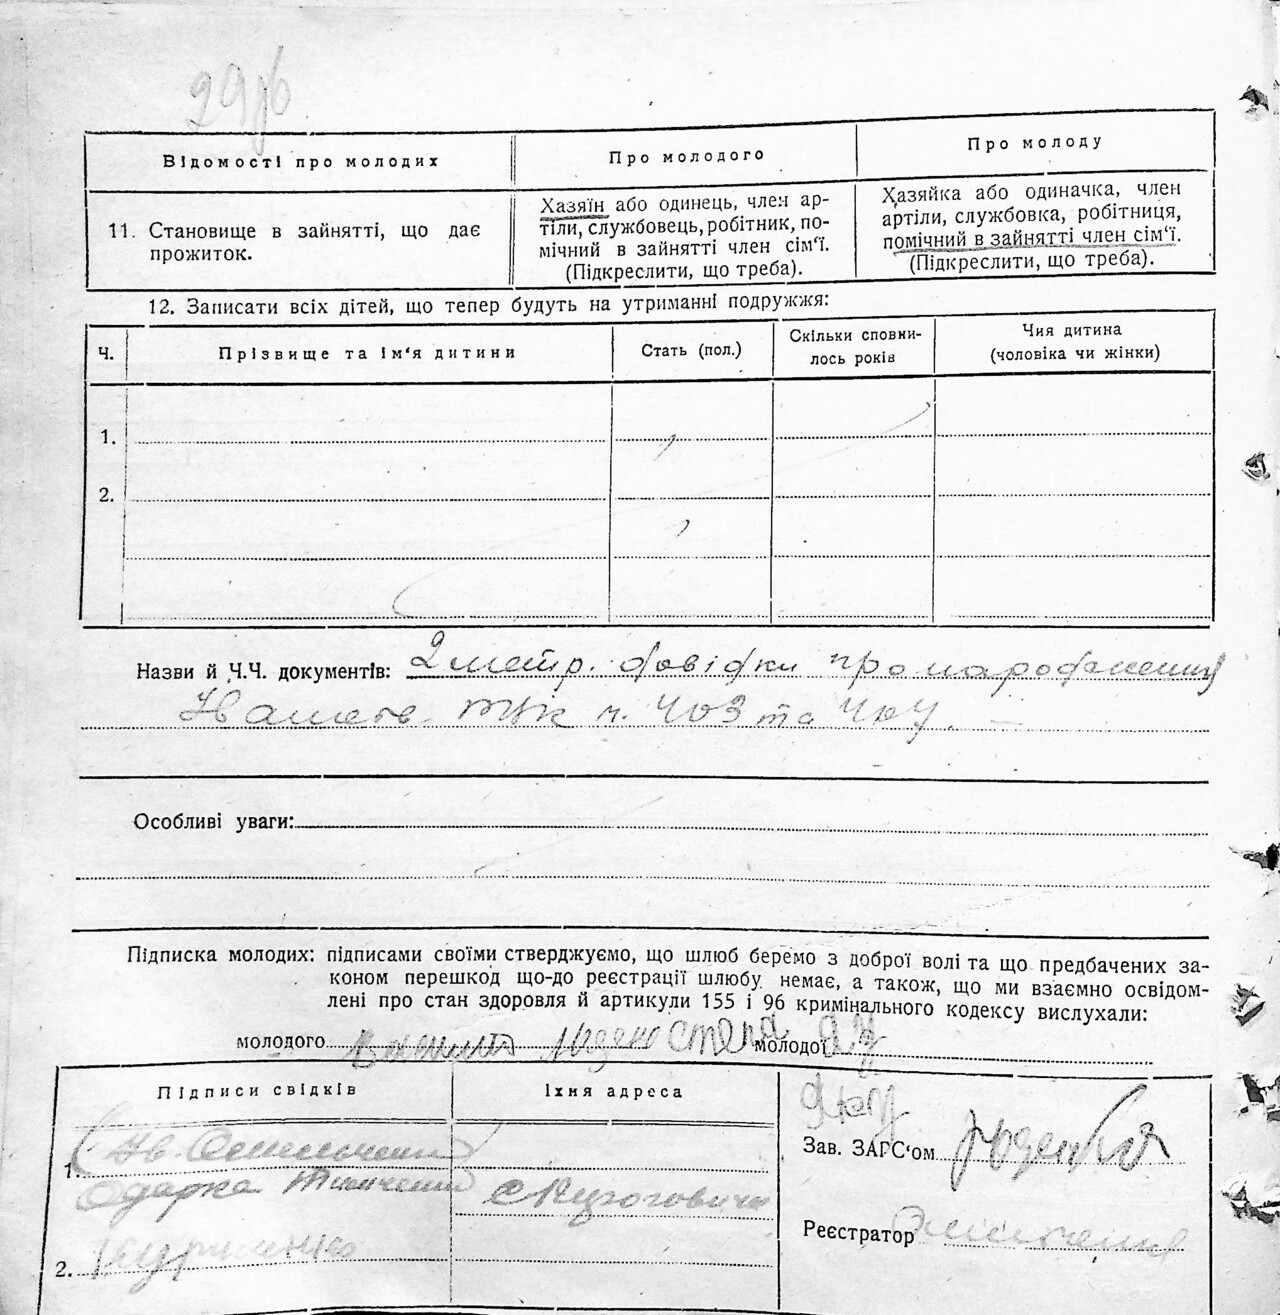 Відомості про молодих
Про молодого
Про молоду
11. Становище в зайнятті, що дає
прожиток.
Хазяїн або одинець, член ар-
тіли, службовець, робітник, по-
мічний в зайнятті член сім'ї.
(Підкреслити, що треба).
Хазяйка або одиначка, член
артіли, службовка, робітниця,
помічний в зайнятті член сім'ї.
(Підкреслити, що треба).
12. Записати всіх дітей, що тепер будуть на утриманні подружжя:
Ч.
Прізвище та ім'я дитини
Стать (пол.)
Скільки сповни-
лось років
Чия дитина
(чоловіка чи жінки)
1.
2.
Назви й Ч.Ч. документів: 2 метр. довідки про народження
403 та 404
Особливі уваги:
Підписка молодих: підписами своїми стверджуємо, що шлюб беремо з доброї волі та що предбачених за-
коном перешкод що-до реєстрації шлюбу немає, а також, що ми взаємно освідом-
лені про стан здоровля й артикули 155 і 96 кримінального кодексу вислухали:
молодого молодої
Підписи свідків
Їхня адреса
1.
Одарка
2.
Зав. ЗАГС'ом
Реєстратор